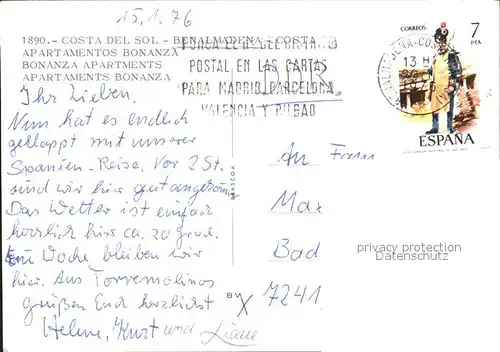 15.1.76
1890.- COSTA DEL SOL - BENALMADENA - COSTA
APARTAMENTOS BONANZA
BONANZA APARTMENTS
APARTMENTS BONANZA
PONGA EL N.º DEL DISTRITO
POSTAL EN LAS CARTAS
PARA MADRID, BARCELONA,
VALENCIA Y BILBAO
CORREOS 7
PTA
13 H
ESPAÑA
Ihr Lieben.
Nun hat es endlich
geklappt mit unserer
Spanien-Reise. Vor 2 St.
sind wir hier gut angekommen
Das Wetter ist einfach
herrlich hier ca. 20 Grad.
Ein Woche bleiben wir
hier. Aus Torremolinos
grüßen Euch herzlichst
Helene, Kurt und
An Frau
Max
Bad
7241
privacy protection
Datenschutz